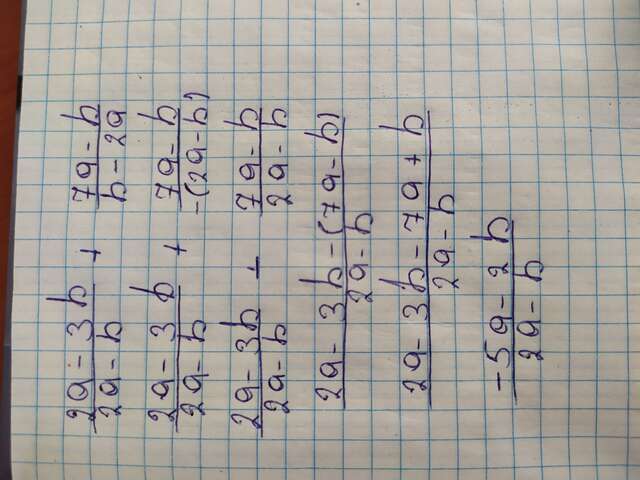 2a - 3b / 2a - b + 7a - b / b - 2a
2a - 3b / 2a - b + 7a - b / -(2a - b)
2a - 3b / 2a - b - 7a - b / 2a - b
2a - 3b - (7a - b) / 2a - b
2a - 3b - 7a + b / 2a - b
-5a - 2b / 2a - b